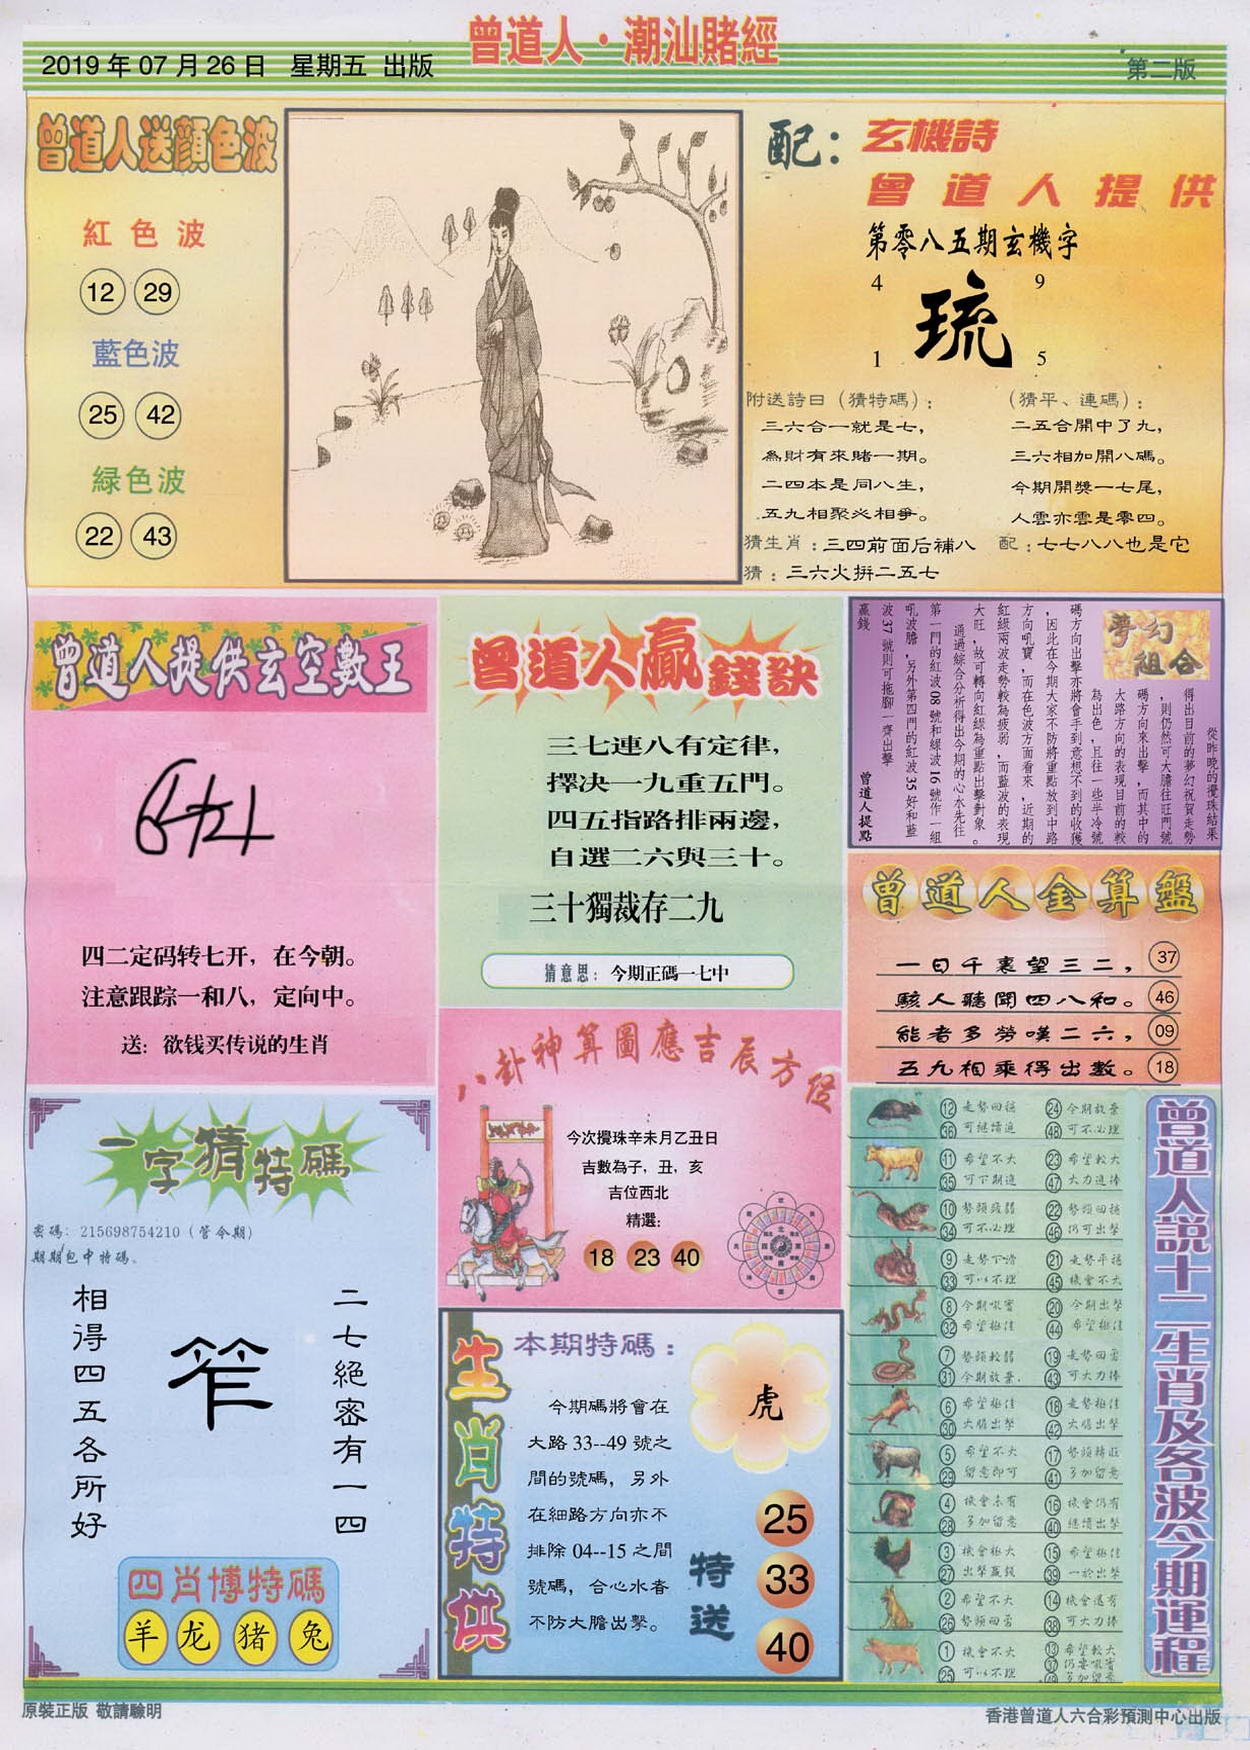 曾道人·潮汕賭經
2019年07月26日 星期五 出版
第二版
曾道人送顔色波
紅色波
12 29
藍色波
25 42
緑色波
22 43
配：玄機詩
曾道人提供
第零八五期玄機字
4 9
琉
1 5
附送詩曰（猜特碼）：
三六合一就是七，
為財有來賭一期。
二四本是同八生，
五九相聚必相爭。
（猜平、連碼）：
二五合開中了九，
三六相加開八碼。
今期開獎一七尾，
人雲亦雲是零四。
猜生肖：三四前面后補八 配：七七八八也是它
猜：三六火拼二五七
曾道人提供玄空數王
四二定码转七开，在今朝。
注意跟踪一和八，定向中。
送：欲钱买传说的生肖
曾道人贏錢訣
三七連八有定律，
擇决一九重五門。
四五指路排兩邊，
自選二六與三十。
三十獨裁存二九
猜意思：今期正碼一七中
夢幻組合
從昨晚的攪珠結果
得出目前的夢幻祝賀走勢
，則仍然可大膽往旺門號
碼方向來出擊，而其中的
大路方向的表現目前的較
為出色，且往一些半冷號
碼方向出擊亦將會手到意想不到的收獲
，因此在今期大家不防將重點放到中路
方向吼寶，而在色波方面看來，近期的
紅綠兩波走勢較為疲弱，而藍波的表現
大旺，故可轉向紅綠為重點出擊對象。
通過綜合分析得出今期的心水先往
第一門的紅波08號和綠波16號作一組
吼波膽，另外第四門的紅波35好和藍
波37號則可拖腳一齊出擊
贏錢
曾道人提點
曾道人金算盤
一日千裏望三二， 37
駭人聽聞四八和。 46
能者多勞嘆二六， 09
五九相乘得出數。 18
八卦神算圖應吉辰方位
今次攪珠辛未月乙丑日
吉數為子，丑，亥
吉位西北
精選：
18 23 40
一字猜特碼
密碼：215698754210（管令期）
期期包中特碼。
相得四五各所好
笮
二七絕密有一四
四肖博特碼
羊 龙 猪 兔
生肖特供
本期特碼：
虎
今期碼將會在
大路33--49號之
間的號碼，另外
在細路方向亦不
排除04--15之間
號碼，合心水者
不防大膽出擊。
特送
25
33
40
曾道人說十二生肖及各波今期運程
12 走勢回穩 24 今期放棄
36 可繼續追 48 可不必理
11 希望不大 23 希望較大
35 可下期追 47 大力追捧
10 勢頭疲弱 22 勢頭回穩
34 可不必理 46 仍可出擊
9 走勢下滑 21 走勢平穩
33 可以不理 45 機會不大
8 今期吼寶 20 今期出擊
32 希望極佳 44 希望極佳
7 勢頭較弱 19 走勢回勇
31 今期放棄. 43 可大力捧
6 希望極佳 18 走勢極佳
30 大膽出擊 42 大膽出擊
5 希望不大 17 勢頭轉旺
29 留意即可 41 多加留意
4 機會未有 16 機會仍有
28 多加留意 40 繼續出擊
3 機會極大 15 希望極佳
27 出擊贏錢 39 一於出擊
2 希望不大 14 機會還有
26 勢頭回勇 38 可大力捧
1 機會不大 13 希望較大
25 可以不理 37 仍要吼實
49 多加留意
原裝正版 敬請驗明
香港曾道人六合彩預測中心出版